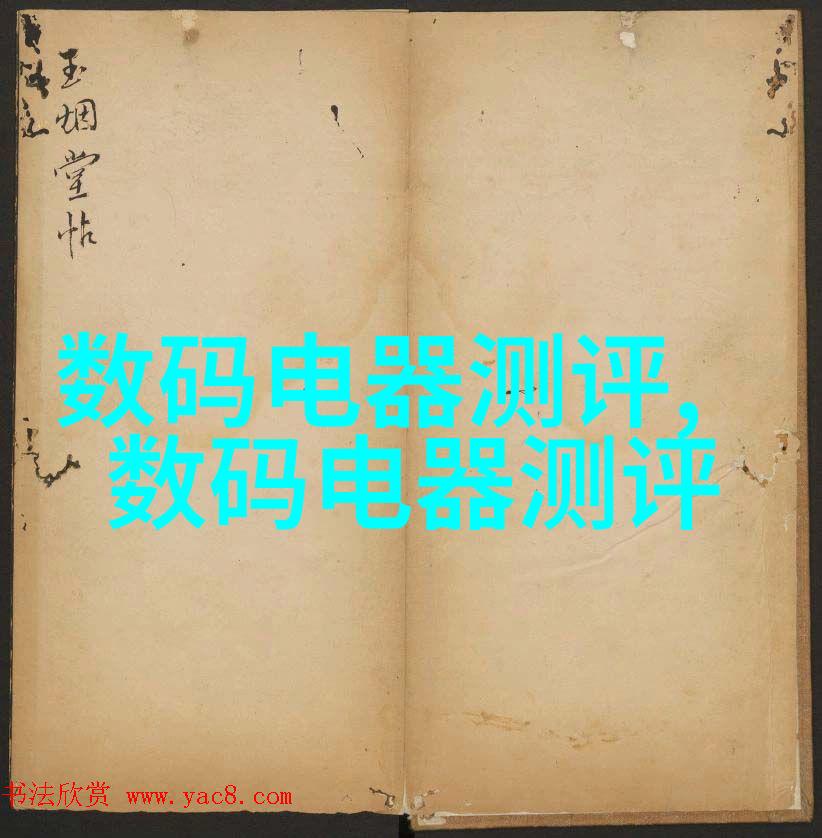 玉烟堂帖
数码电器测评,
数码电器测评
书法欣赏 www.yac8.com